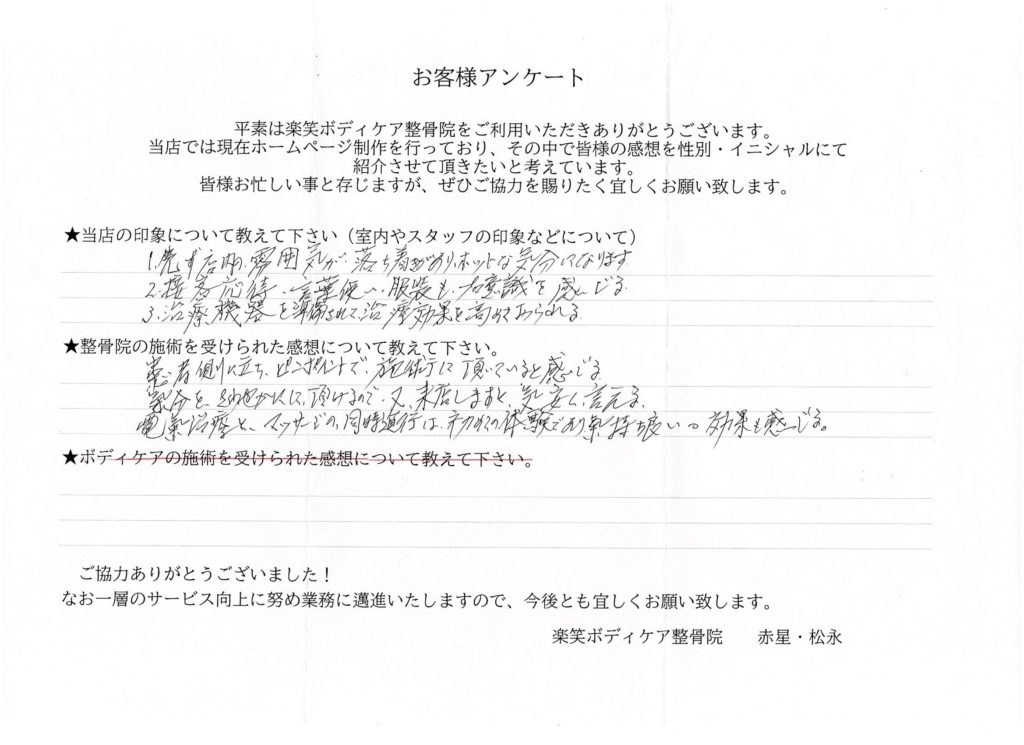 お客様アンケート
平素は楽笑ボディケア整骨院をご利用いただきありがとうございます。
当店では現在ホームページ制作を行っており、その中で皆様の感想を性別・イニシャルにて
紹介させて頂きたいと考えています。
皆様お忙しい事と存じますが、ぜひご協力を賜りたく宜しくお願い致します。
★当店の印象について教えて下さい（室内やスタッフの印象などについて）
1.先ず店内、雰囲気が、落ち着きがあり、ホットな気分になります
2.接客応待、言葉使い、服装も、意識を感じる
3.治療機器を準備されて、治療効果を高めておられる
★整骨院の施術を受けられた感想について教えて下さい。
患者側に立ち、ピンポイントで、施術行に頂いていると感じる
気分を、に、頂けるので、又、来店しますと、気安く言える、
電気治療と、マッサージの、同時進行は、初めての体験であり気持ち良いの効果も感じる。
★ボディケアの施術を受けられた感想について教えて下さい。
ご協力ありがとうございました！
なお一層のサービス向上に努め業務に邁進いたしますので、今後とも宜しくお願い致します。
楽笑ボディケア整骨院　　赤星・松永